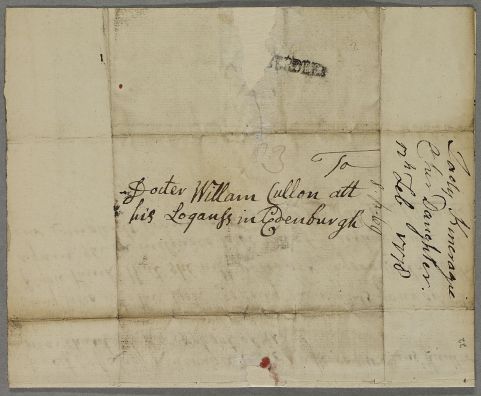 To
Docter Willam Cullon att
his Loganss in Edenburgh
Lady Kineragie
& her Daughter.
17th Feb 1778
23